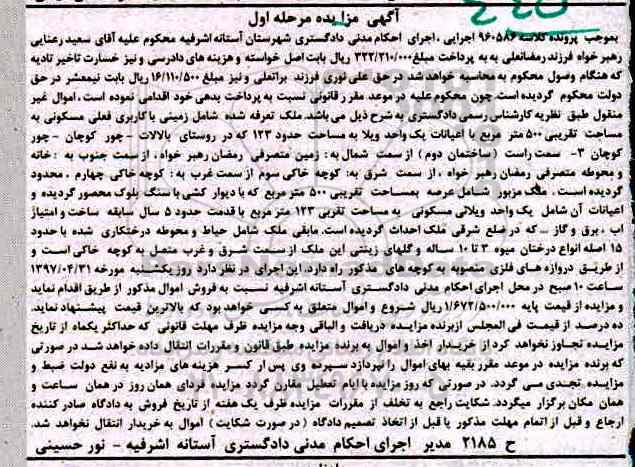 آگهی مزایده مرحله اول
بموجب پرونده کلاسه ۹۶۰۵۸۶ اجرایی ، اجرای احکام مدنی دادگستری شهرستان آستانه اشرفیه محکوم علیه آقای سعید رعنایی
رهبر خواه فرزند رمضانعلی به به پرداخت مبلغ ۳۲۲/۲۱۰/۰۰۰ ریال بابت اصل خواسته و هزینه های دادرسی و نیز خسارت تاخیر تادیه
که هنگام وصول محکوم به محاسبه خواهد شد در حق علی نوری فرزند براتعلی و نیز مبلغ ۱۶/۱۱۰/۵۰۰ ریال بابت نیمعشر در حق
دولت محکوم گردیده است.چون محکوم علیه در موعد مقرر قانونی نسبت به پرداخت بدهی خود اقدامی ننموده است ، اموال غیر
منقول طبق نظریه کارشناس رسمی دادگستری به شرح ذیل می باشد. ملک تعرفه شده شامل زمینی با کاربری فعلی مسکونی به
مساحت تقریبی ۵۰۰ متر مربع با اعیانات یک واحد ویلا به مساحت حدود ۱۲۳ که در روستای بالالات - چور کوچان - چور
کوچان ۳- سمت راست ( ساختمان دوم ) از سمت شمال به : زمین متصرفی رمضان رهبر خواه ، از سمت جنوب به : خانه
و محوطه متصرفی رمضان رهبر خواه ، از سمت شرق به: کوچه خاکی سوم از سمت غرب به : کوچه خاکی چهارم ، محدود
گردیده است . ملک مزبور شامل عرصه بمساحت تقریبی ۵۰۰ متر مربع که با دیوار کشی با سنگ بلوک محصور گردیده و
اعیانات آن شامل یک واحد ویلائی مسکونی به مساحت تقریبی ۱۲۳ متر مربع با قدمت حدود ۵ سال سابقه ساخت و امتیاز
آب ، برق و گاز ... که در ضلع شرقی ملک احداث گردیده است. مابقی ملک شامل حیاط و محوطه درختکاری شده با حدود
۱۵ اصله انواع درختان میوه ۳ تا ۱۰ ساله و گلهای زینتی این ملک از سمت شرق و غرب متصل به کوچه خاکی است و
از طریق دروازه های فلزی منصوبه به کوچه های مذکور راه دارد. این اجرای در نظر دارد روز یکشنبه مورخه ۱۳۹۷/۰۴/۳۱
ساعت ۱۰ صبح در محل اجرای احکام مدنی دادگستری آستانه اشرفیه نسبت به فروش اموال مذکور از طریق اقدام نماید
و مزایده از قیمت پایه ۱/۶۷۲/۵۰۰/۰۰۰ ریال شروع و اموال متعلق به کسی خواهد بود که بالاترین قیمت پیشنهاد نماید.
ده درصد از قیمت فی المجلس از برنده مزایده دریافت و الباقی وجه مزایده ظرف مهلت قانونی که حداکثر یکماه از تاریخ
مزایده تجاوز نخواهد کرد از خریدار اخذ و اموال به برنده مزایده طبق قانون و مقررات انتقال داده خواهد شد در صورتی
که برنده مزایده در موعد مقرر بقیه بهای اموال را نپردازد سپرده وی پس از کسر هزینه های مزایده به نفع دولت ضبط و
مزایده تجدی می گردد. در صورتی که روز مزایده با ایام تعطیل مقارن گردد مزایده فردای همان روز در همان ساعت و
همان مکان برگزار میگردد. شکایت راجع به تخلف از مقررات مزایده ظرف یک هفته از تاریخ فروش به دادگاه صادر کننده
ارجاع و قبل از اتمام مهلت مذکور یا قبل از اتخاذ تصمیم دادگاه ( در صورت شکایت ) اموال به خریدار انتقال نخواهد شد.
ح ۲۱۸۵ مدیر اجرای احکام مدنی دادگستری آستانه اشرفیه - نور حسینی